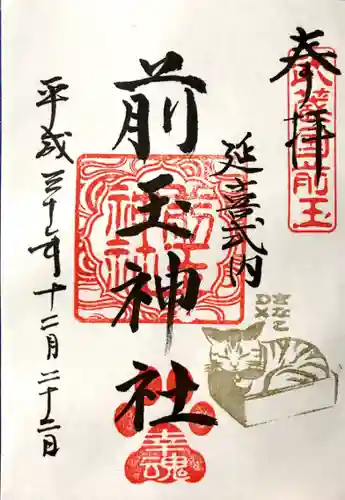 奉拝
武蔵国前玉
延喜式内
前玉神社
前玉神社
幸魂
きなこ
DX
平成三十年十二月二十二日